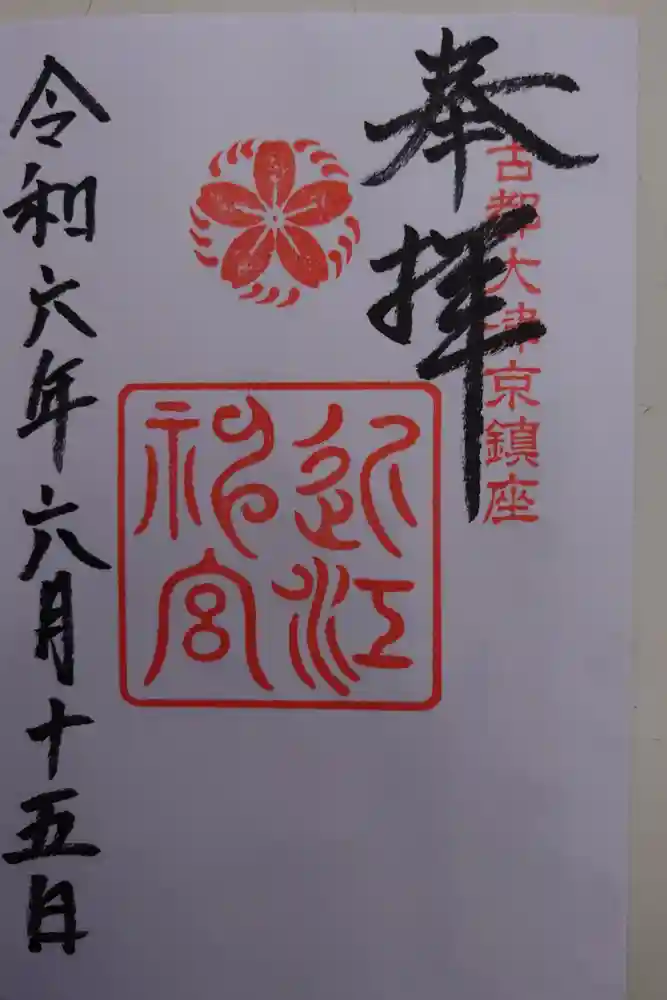 奉拝
古都大津京鎮座
近江
神宮
令和六年六月十五日